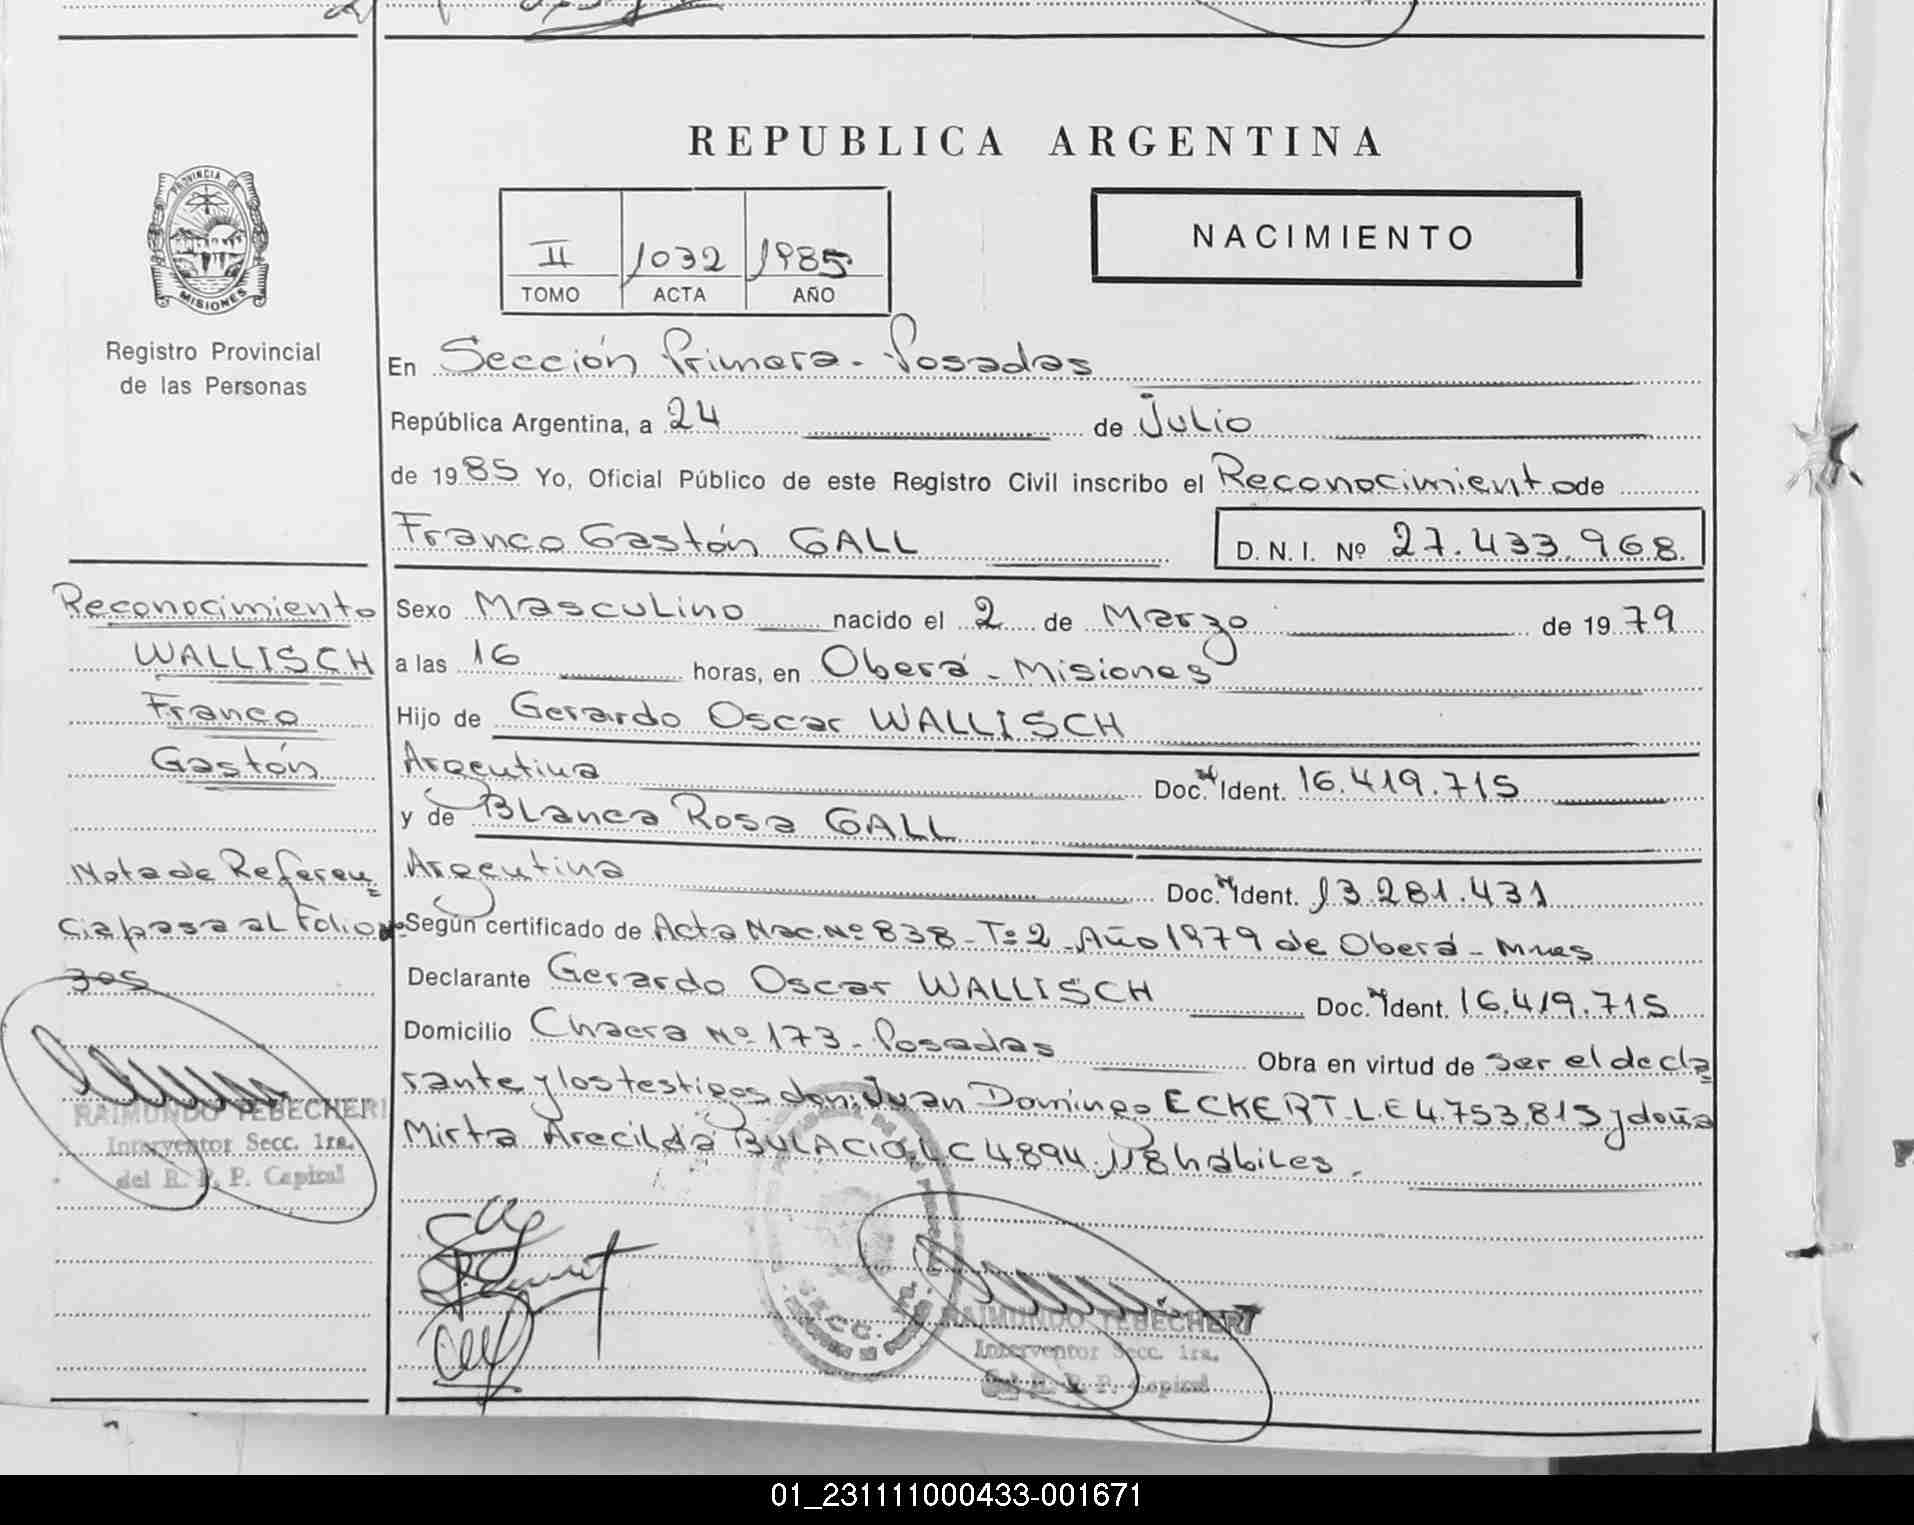 REPUBLICA ARGENTINA
PROVINCIA DE
MISIONES
Registro Provincial
de las Personas
II 1032 1985
TOMO ACTA AÑO
NACIMIENTO
En Sección Primera - Posadas
República Argentina, a 24 de Julio
de 1985 Yo, Oficial Público de este Registro Civil inscribo el Reconocimiento de
Franco Gastón GALL D. N. I. Nº 27.433.968
Reconocimiento
WALLISCH
Franco
Gastón
Nota de Referen=
cia pasa al Folio
305
RAIMUNDO TEBECHERI
Interventor Secc. 1ra.
del R. P. P. Capital
Sexo Masculino nacido el 2 de Marzo de 1979
a las 16 horas, en Oberá - Misiones
Hijo de Gerardo Oscar WALLISCH
Argentina Doc. Ident. 16.419.715
y de Blanca Rosa GALL
Argentina Doc. Ident. 13.281.431
Según certificado de Acta Nac. Nº 838 - Tº 2 - Año 1979 de Oberá - Mnes
Declarante Gerardo Oscar WALLISCH Doc. Ident. 16.419.715
Domicilio Chacra Nº 173 - Posadas Obra en virtud de ser el decla=
rante y los testigos don: Juan Domingo ECKERT L.E 4.753.815 y doña
Mirta Arecilda BULACIO LC 4894.118 hábiles.
SECC.
RAIMUNDO TEBECHERI
Interventor Secc. 1ra.
del R. P. P. Capital
01_231111000433-001671